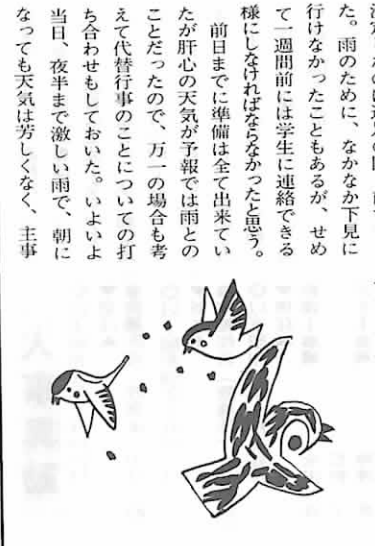 た。雨のために、なかなか下見に
行けなかったこともあるが、せめ
て一週間前には学生に連絡できる
様にしなければならなかったと思う。
前日までに準備は全て出来てい
たが肝心の天気が予報では雨との
ことだったので、万一の場合も考
えて代替行事のことについての打
ち合わせもしておいた。いよいよ
当日、夜半まで激しい雨で、朝に
なっても天気は芳しくなく、主事